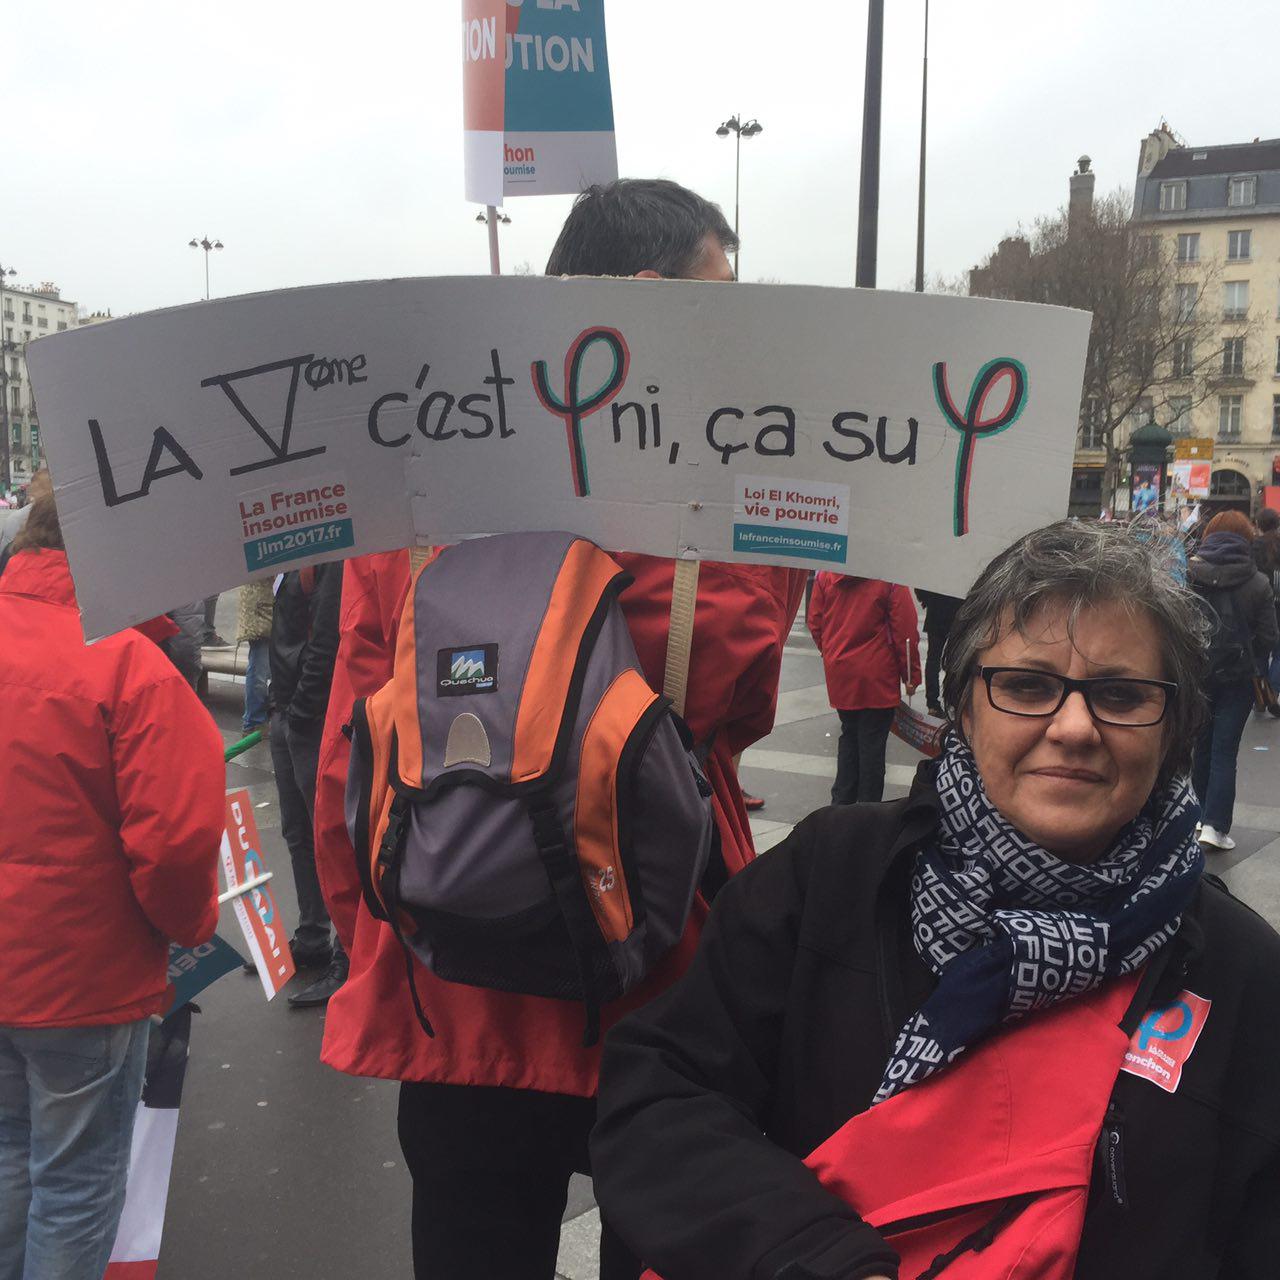 LA
TION
UTION
hon
oumise
LA Vème c'est φni, ça suφ
La France
insoumise
jlm2017.fr
Loi El Khomri,
vie pourrie
lafranceinsoumise.fr
Quechua
25
DU
DÉM
φ
enchon